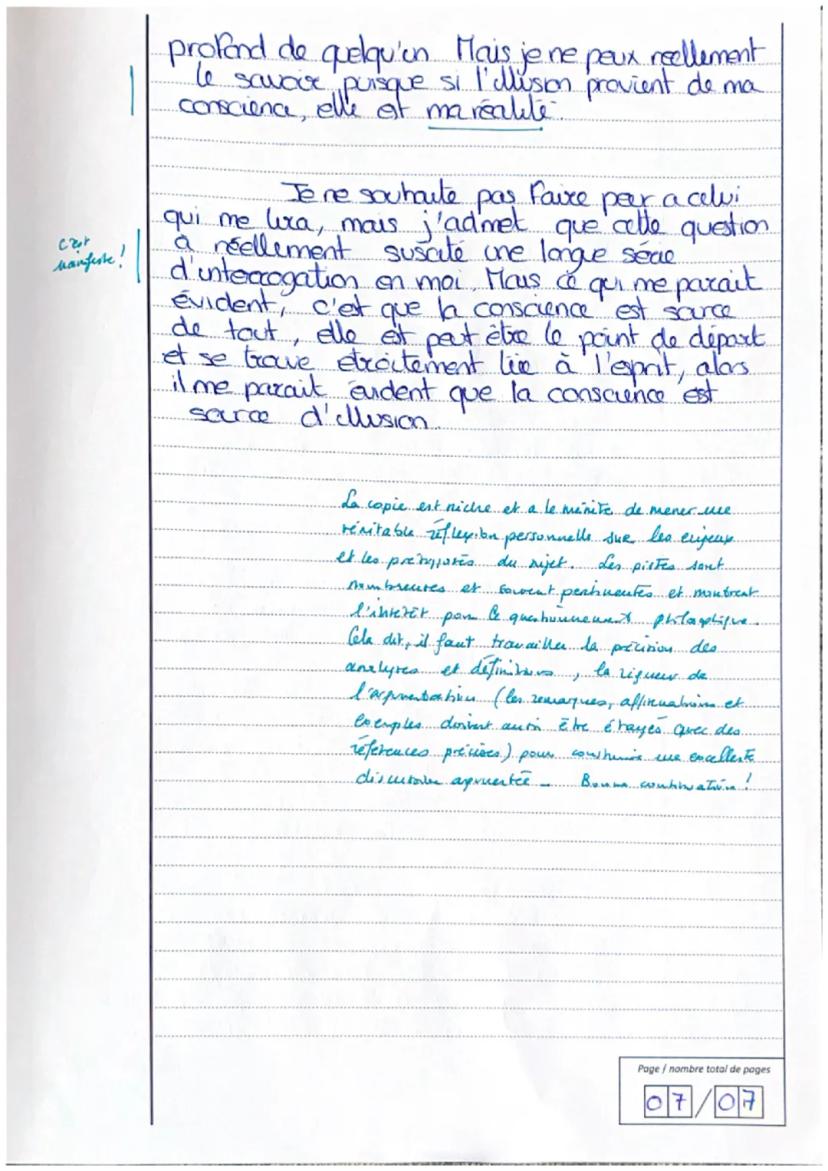 profond de quelqu'un. Mais je ne peux réellement
le savoir puisque si l'illusion provient de ma
conscience, elle est ma réalité.
Je ne souhaite pas faire peur a celui
qui me lira, mais j'admet que cette question
c'est
manifeste !
à réellement suscité une longue série
d'interrogation en moi. Mais ce qui me parait
évident, c'est que la conscience est source
de tout, elle est peut être le point de départ
et se trouve etroitement lié à l'esprit, alors
il me parait évident que la conscience est
source d'illusion.
La copie est riche et a le mérite de mener une
véritable réflexion personnelle sur les enjeux
et les présupposés du sujet. Les pistes sont
nombreuses et souvent pertinentes et montrent
l'intérêt pour le questionnement philosophique.
Cela dit, il faut travailler la précision des
analyses et définitions, la rigueur de
l'argumentation (les remarques, affirmations et
exemples doivent aussi être étayés avec des
références précises) pour construire une excellente
discussion argumentée. Bonne continuation !
Page / nombre total de pages
07/07